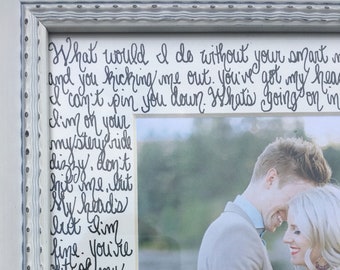 What would I do without your smart m
and you kicking me out. You've got my head
I can't pin you down. What's going on in
I'm on your
mystery ride
dizzy, don't
hit me, but
My head's
but I'm
fine. You're